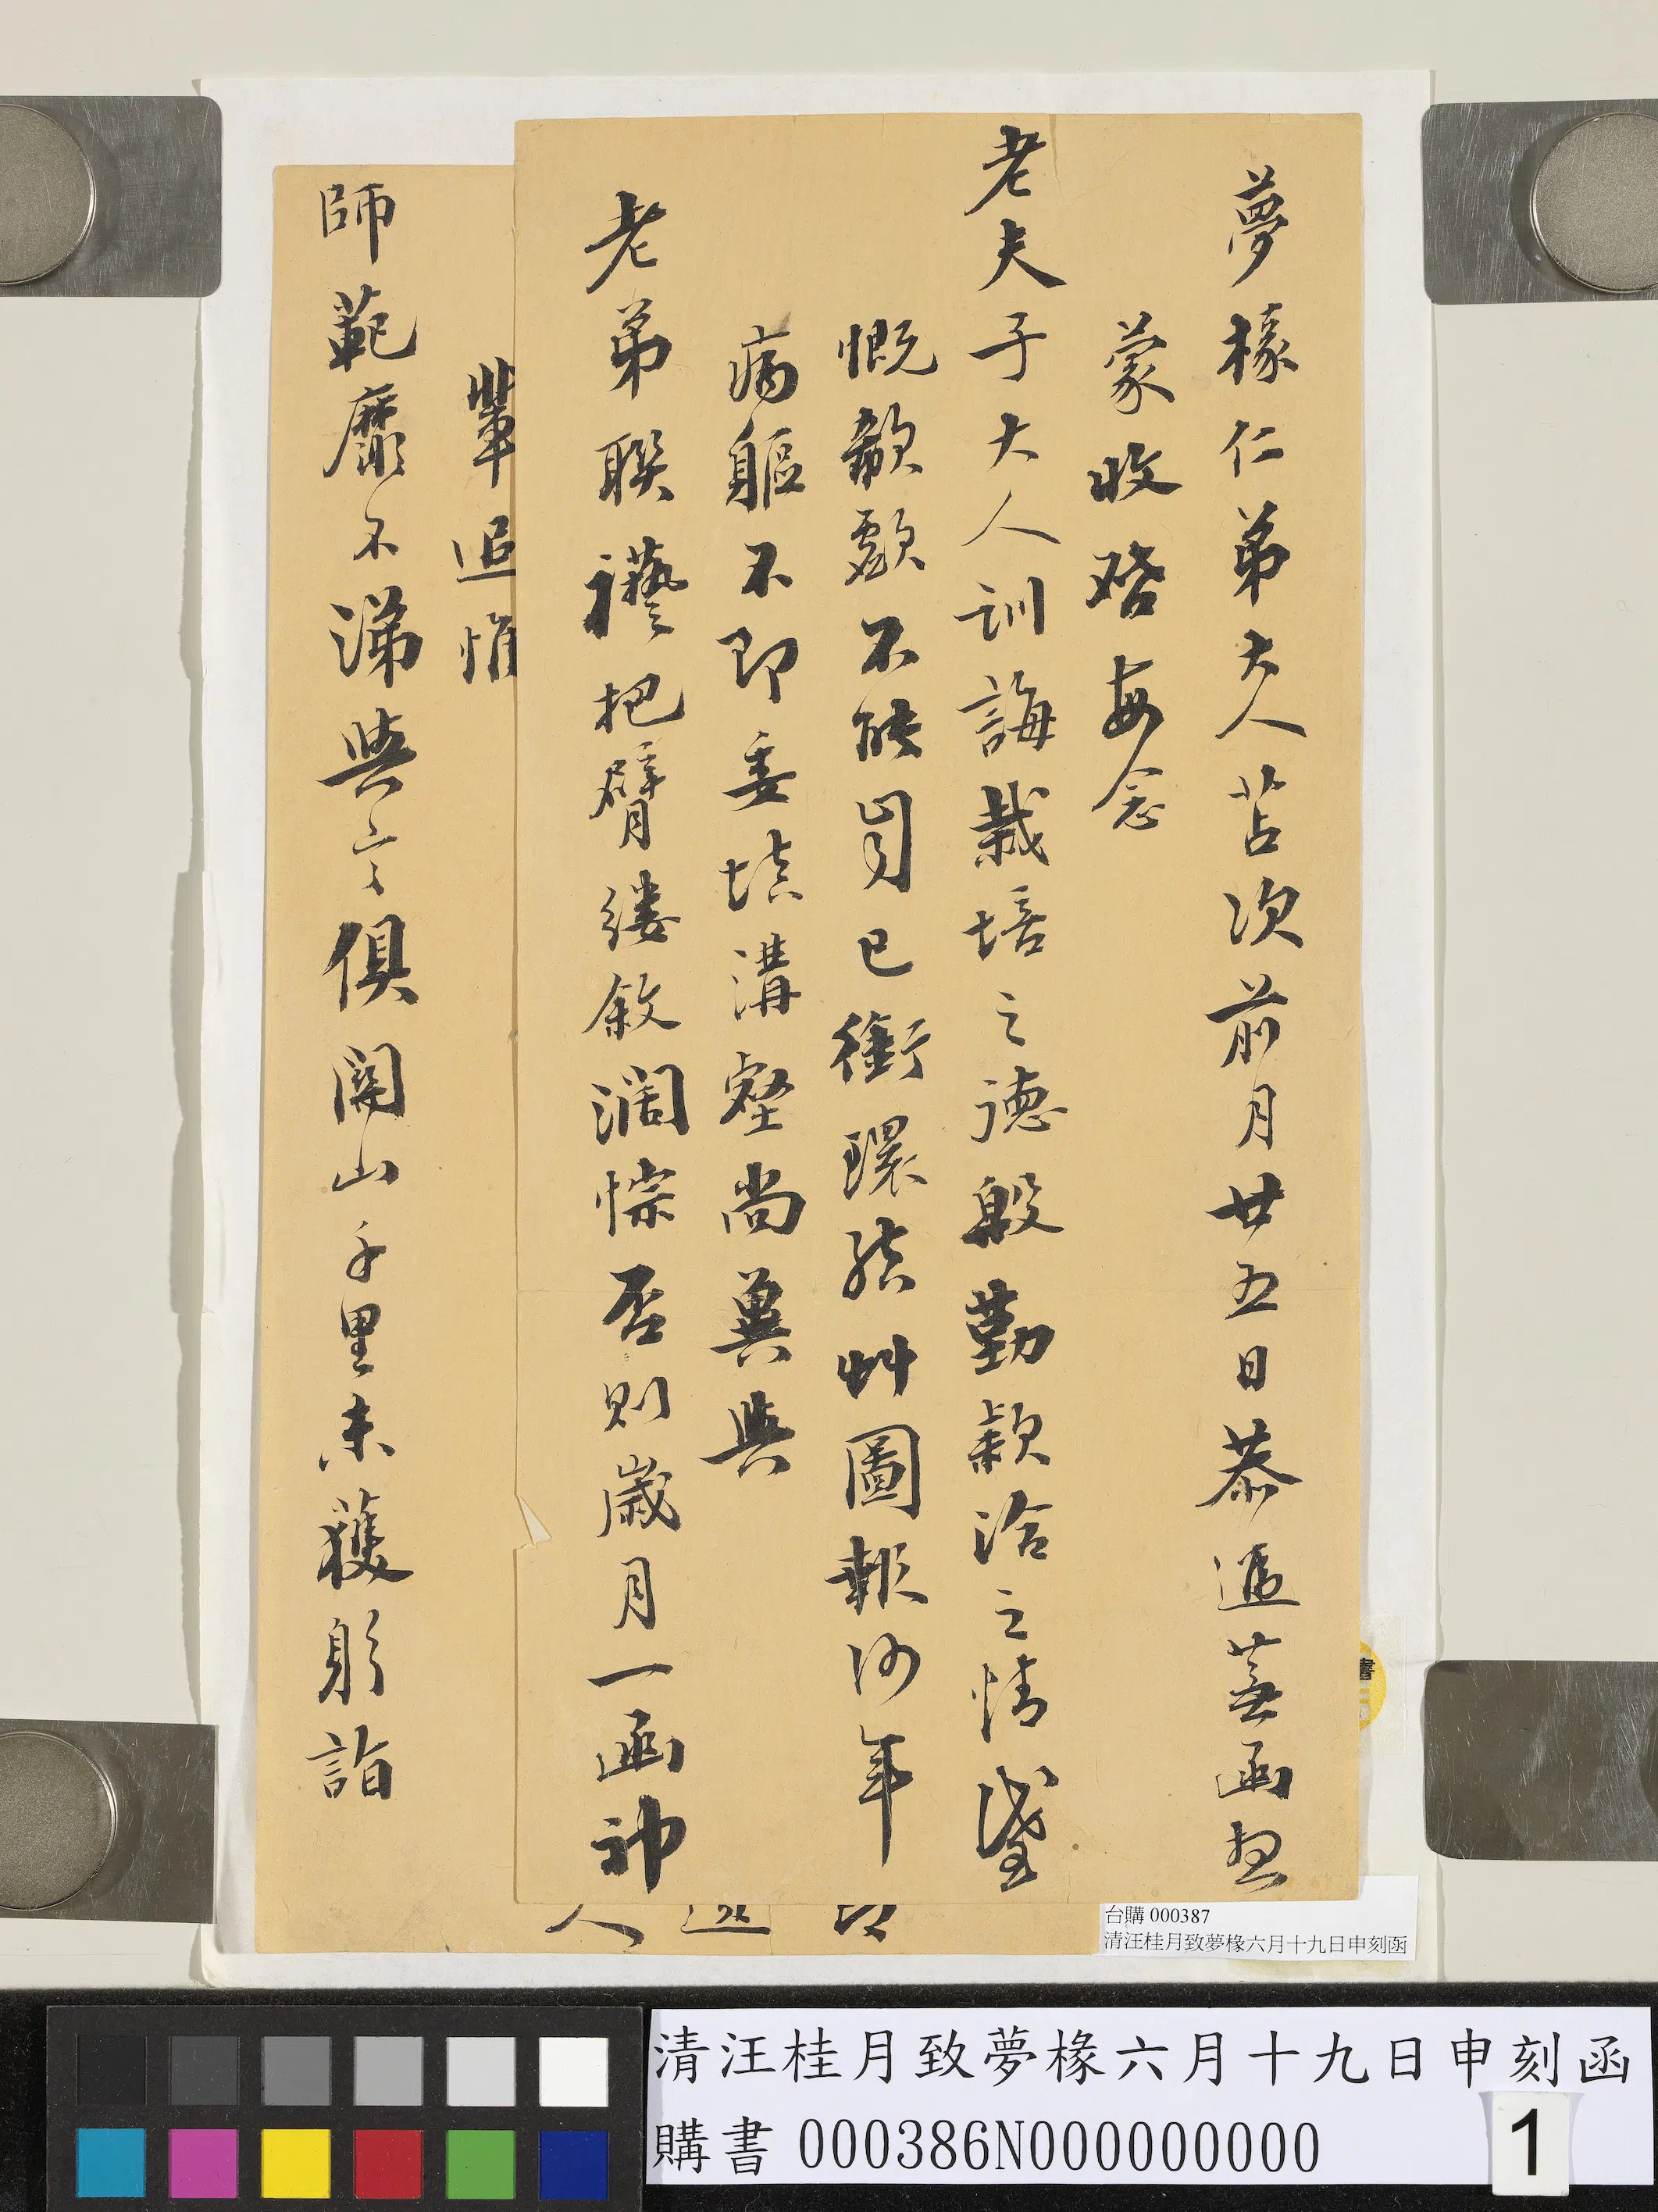 夢椽仁弟大人苫次前月廿五日恭遞蕪函想
蒙收啓每念
老夫子大人訓誨栽培之德殷勤款洽之情感
慨欷歔不能自已銜環結艸圖報何年
病軀不即委填溝壑尚冀與
老弟聯襼把臂縷敘濶悰否則歲月一函神
人
輩追惟
師範靡不涕與言俱關山千里未獲躬詣
台購 000387
清汪桂月致夢椽六月十九日申刻函
書
清汪桂月致夢椽六月十九日申刻函
購書 000386N000000000
1